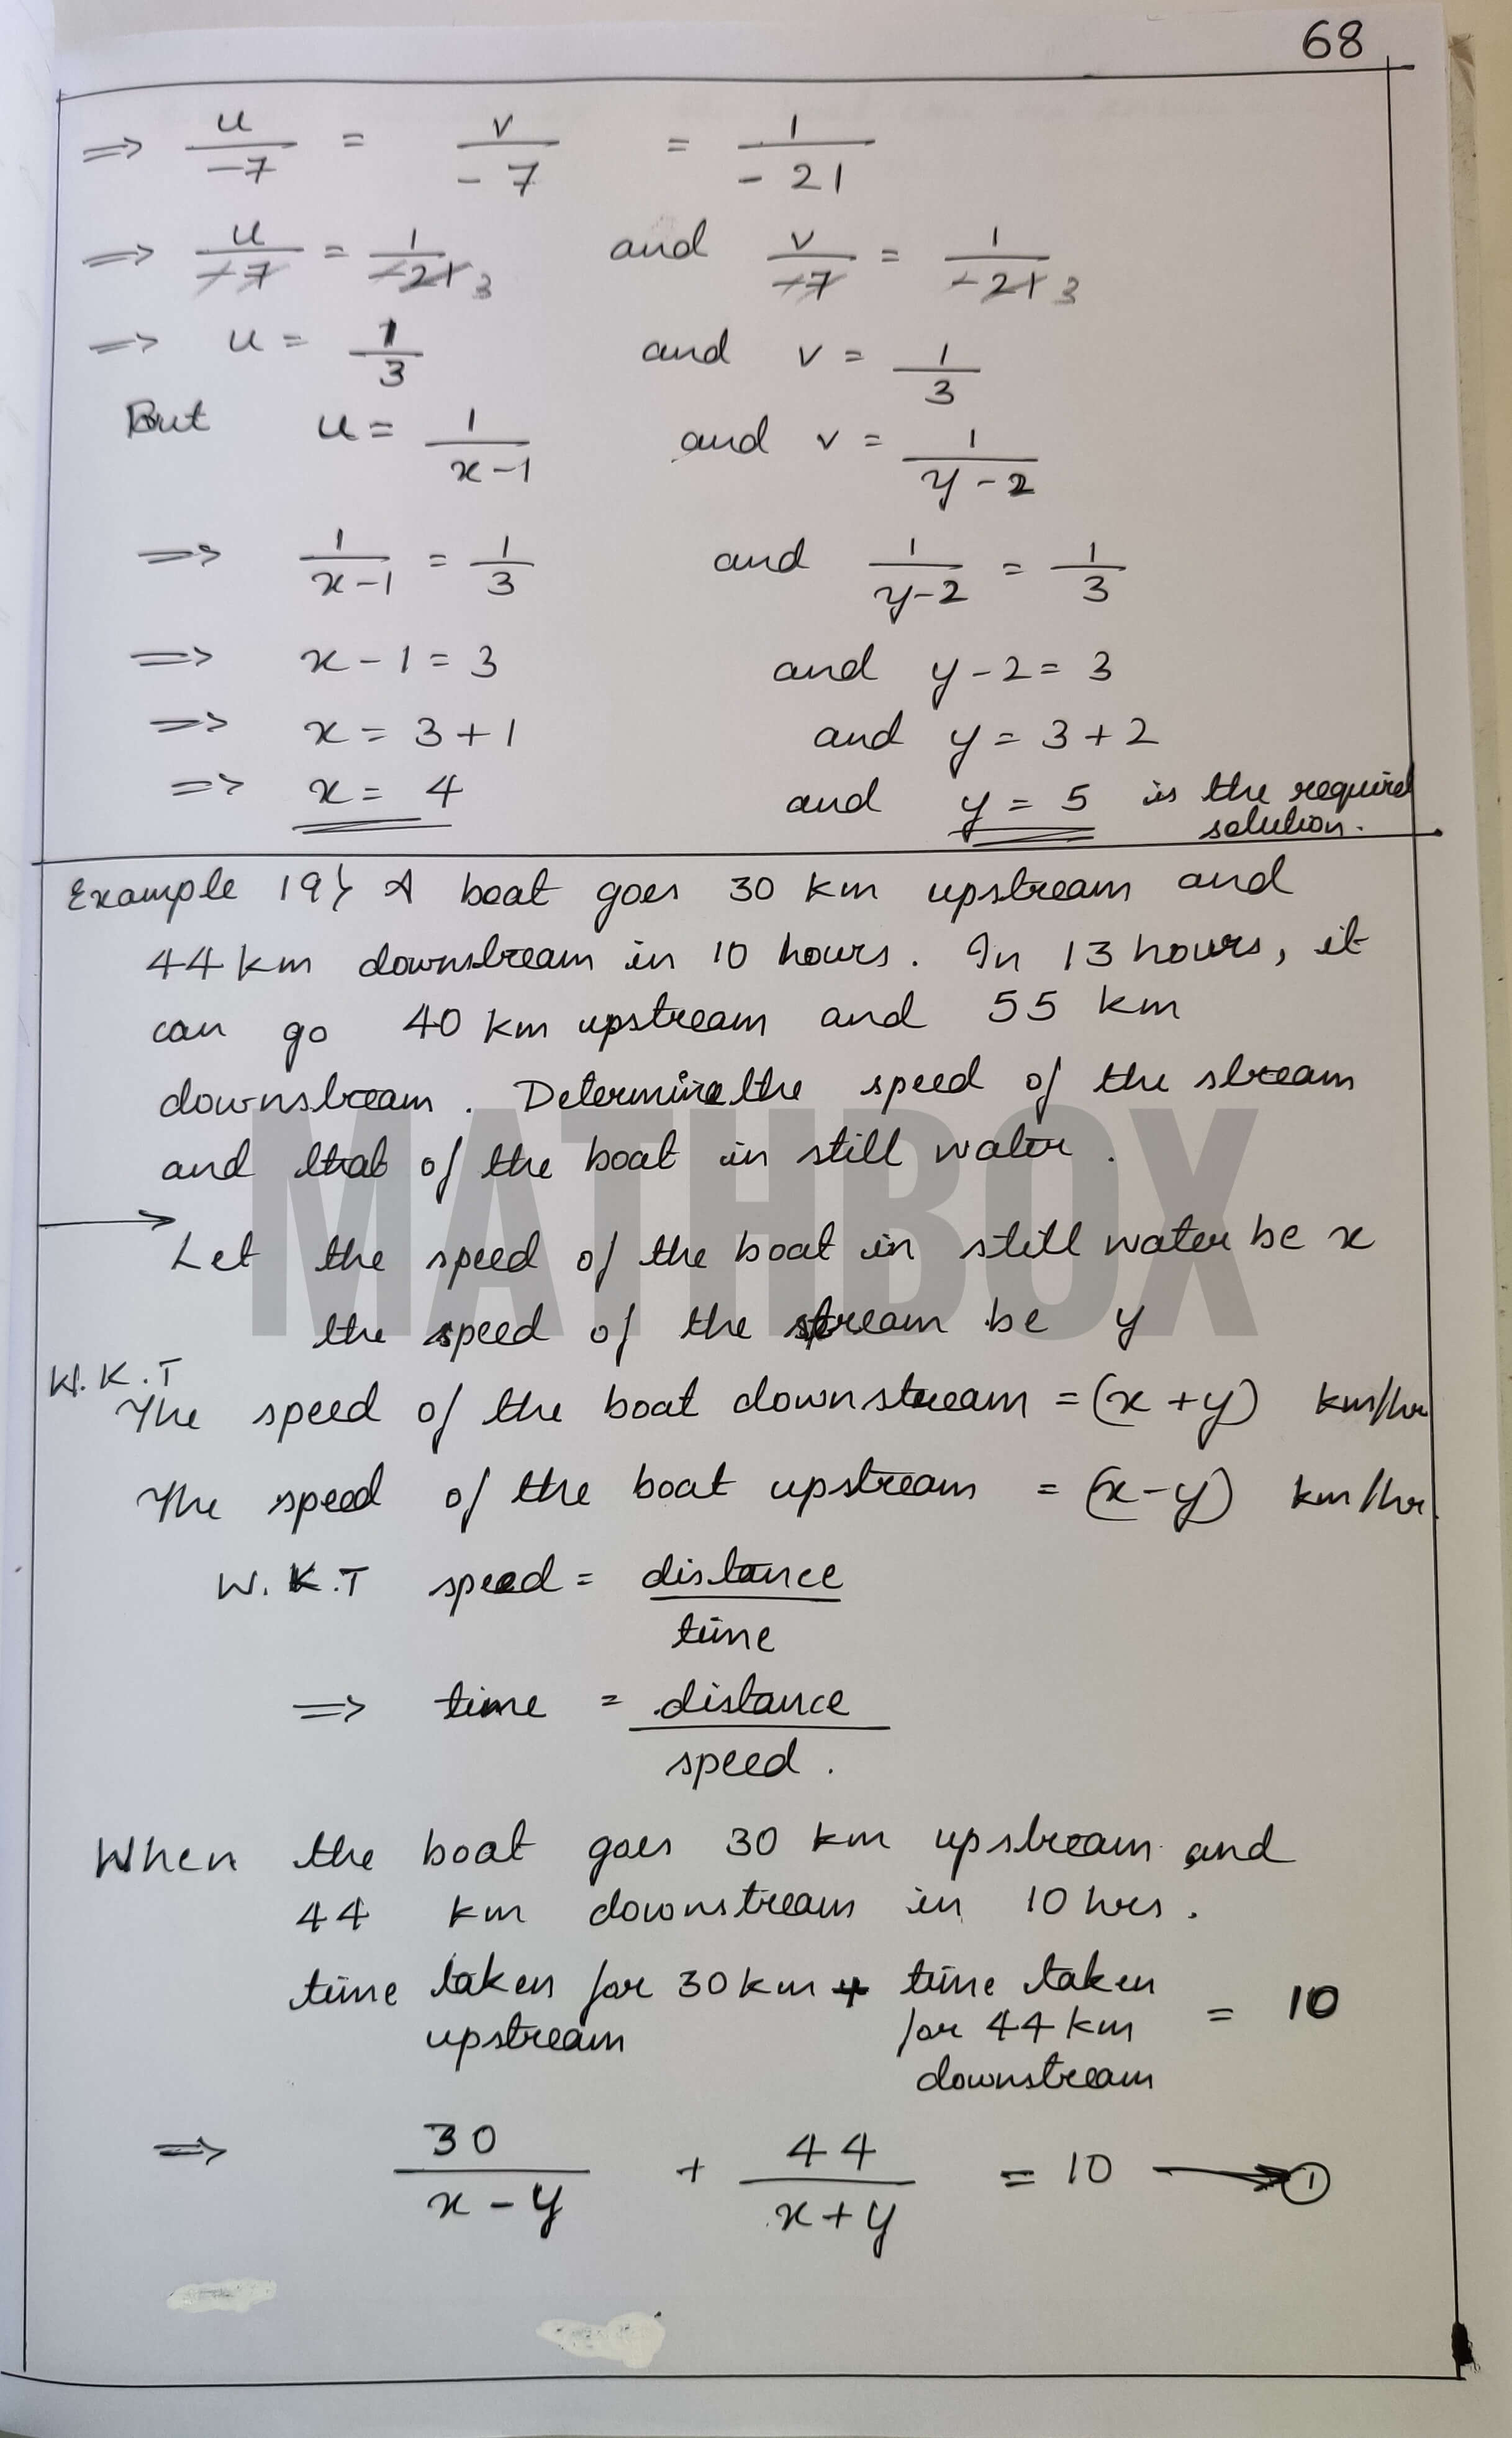 68
⇒ u/-7 = v/-7 = 1/-21
⇒ u/-7 = 1/-21 3 and v/-7 = 1/-21 3
⇒ u = 1/3 and v = 1/3
But u = 1/x-1 and v = 1/y-2
⇒ 1/x-1 = 1/3 and 1/y-2 = 1/3
⇒ x-1 = 3 and y-2 = 3
⇒ x = 3+1 and y = 3+2
⇒ x = 4 and y = 5 is the required
solution.
Example 19} A boat goes 30 km upstream and
44 km downstream in 10 hours. In 13 hours, it
can go 40 km upstream and 55 km
downstream. Determine the speed of the stream
and that of the boat in still water.
MATHBOX
→ Let the speed of the boat in still water be x
the speed of the stream be y
W.K.T
The speed of the boat downstream = (x+y) km/hr
The speed of the boat upstream = (x-y) km/hr.
W.K.T speed = distance
time
⇒ time = distance
speed.
When the boat goes 30 km upstream and
44 km downstream in 10 hrs.
time taken for 30 km + time taken
upstream for 44 km = 10
downstream
⇒ 30/x-y + 44/x+y = 10 → ①